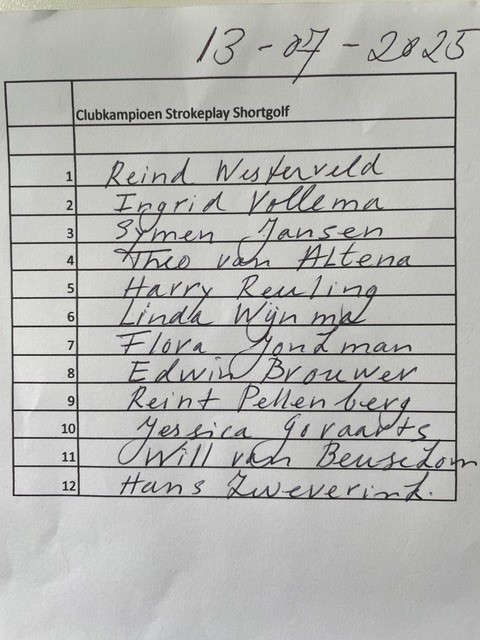 13-07-2025
Clubkampioen Strokeplay Shortgolf
1 Reind Westerveld
2 Ingrid Vollema
3 Symen Jansen
4 Theo van Altena
5 Harry Reuling
6 Linda Wijnma
7 Flora
8 Edwin Brouwer
9 Reint Pellenberg
10 Jessica Govaarts
11 Will van
12 Hans